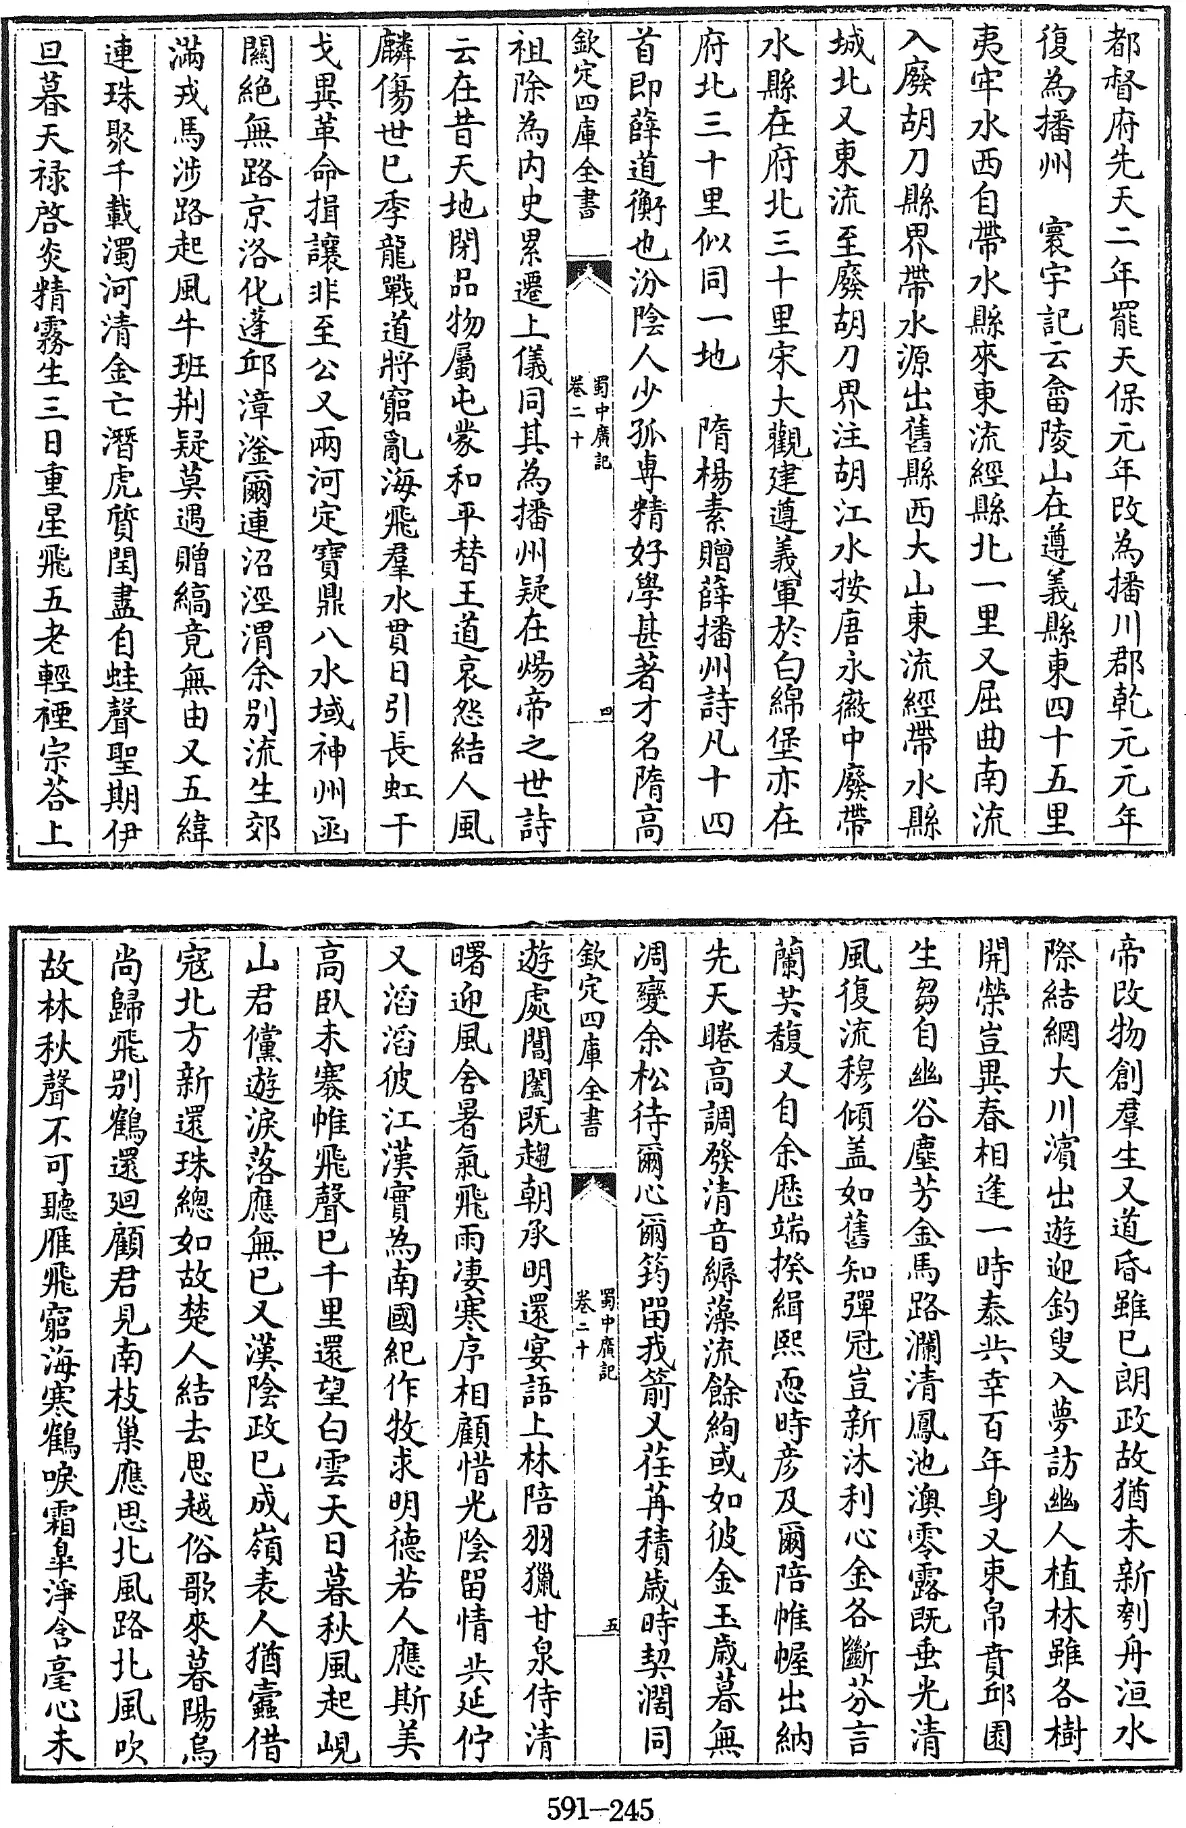 都督府先天二年罷天保元年改為播川郡乾元元年
復為播州　寰宇記云龠陵山在遵義縣東四十五里
夷牢水西自帶水縣來東流經縣北一里又屈曲南流
入廢胡刀縣界帶水源出舊縣西大山東流經帶水縣
城北又東流至廢胡刀界注胡江水按唐永徽中廢帶
水縣在府北三十里宋大觀建遵義軍於白綿堡亦在
府北三十里似同一地　隋楊素贈薛播州詩凡十四
首即薛道衡也汾陰人少孤専精好學甚著才名隋高
欽定四庫全書
蜀中廣記
卷二十
四
祖除為内史累遷上儀同其為播州疑在煬帝之世詩
云在昔天地閉品物屬屯蒙和平替王道哀怨結人風
麟傷世已季龍戰道將窮亂海飛羣水貫日引長虹干
戈異革命揖讓非至公又兩河定寶鼎八水域神州函
關絶無路京洛化蓬邱漳滏爾連沼涇渭余别流生郊
滿戎馬涉路起風牛班荆疑莫遇贈縞竟無由又五緯
連珠聚千載濁河清金亡潛虎質閏盡自蛙聲聖期伊
旦暮天禄啓炎精霧生三日重星飛五老輕禋宗荅上
帝改物創羣生又道昏雖已朗政故猶未新刳舟洹水
際結網大川濱出遊迎釣叟入夢訪幽人植林雖各樹
開榮豈異春相逢一時泰共幸百年身又束帛賁邱園
生芻自幽谷塵芳金馬路瀾清鳳池澳零露既垂光清
風復流穆傾盖如舊知彈冠豈新沐利心金各斷芬言
蘭共馥又自余歴端揆緝熙恧時彦及爾陪帷幄出納
先天睠高調發清音縟藻流餘絢或如彼金玉歲暮無
凋變余松待爾心爾筠留我箭又荏苒積歲時契濶同
欽定四庫全書
蜀中廣記
卷二十
五
遊處閶闔既趨朝承明還宴語上林陪羽獵甘泉侍清
曙迎風含暑氣飛雨凄寒序相顧惜光陰留情共延佇
又滔滔彼江漢實為南國紀作牧求明德若人應斯美
高臥未褰帷飛聲已千里還望白雲天日暮秋風起峴
山君儻遊淚落應無已又漢陰政已成嶺表人猶蠧借
寇北方新還珠總如故楚人結去思越俗歌來暮陽烏
尚歸飛别鶴還廻顧君見南枝巢應思北風路北風吹
故林秋聲不可聽雁飛窮海寒鶴唳霜臯淨含毫心未
591-245